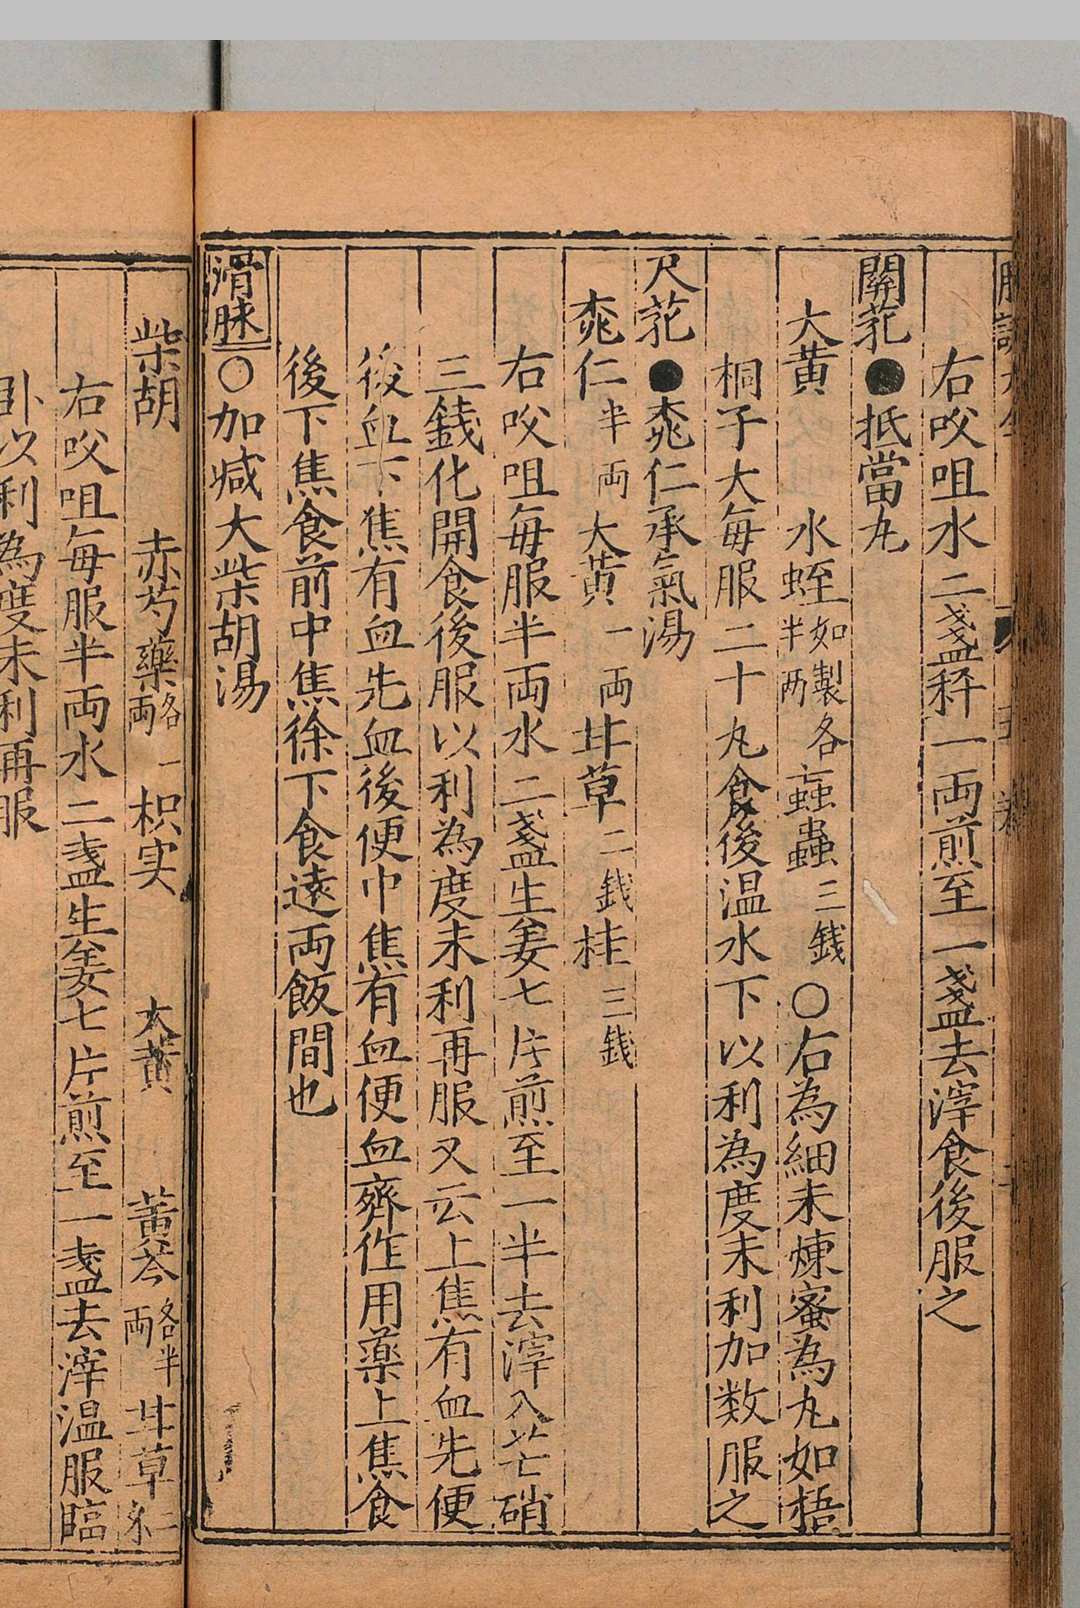 右㕮咀水二盞秤一両煎至一盞去滓食後服之
關芤●抵當丸
大黄 水蛭如製各半两 䖟蟲三錢〇右為細末煉蜜為丸如梧
桐子大每服二十丸食後温水下以利為度未利加数服之
尺芤●桃仁承氣湯
桃仁半両大黄一両甘草二錢桂三錢
右㕮咀每服半両水二盞生姜七片煎至一半去滓入芒硝
三錢化開食後服以利為度未利再服又云上焦有血先便
後血下焦有血先血後便中焦有血便血齊作用藥上焦食
後下焦食前中焦徐下食遠両飯間也
滑脉〇加减大柴胡湯
柴胡 赤芍藥各一両 枳实 大黄 黄芩各半両 甘草
右㕮咀每服半両水二盞生姜七片煎至一盞去滓温服臨
卧以利為度未利再服